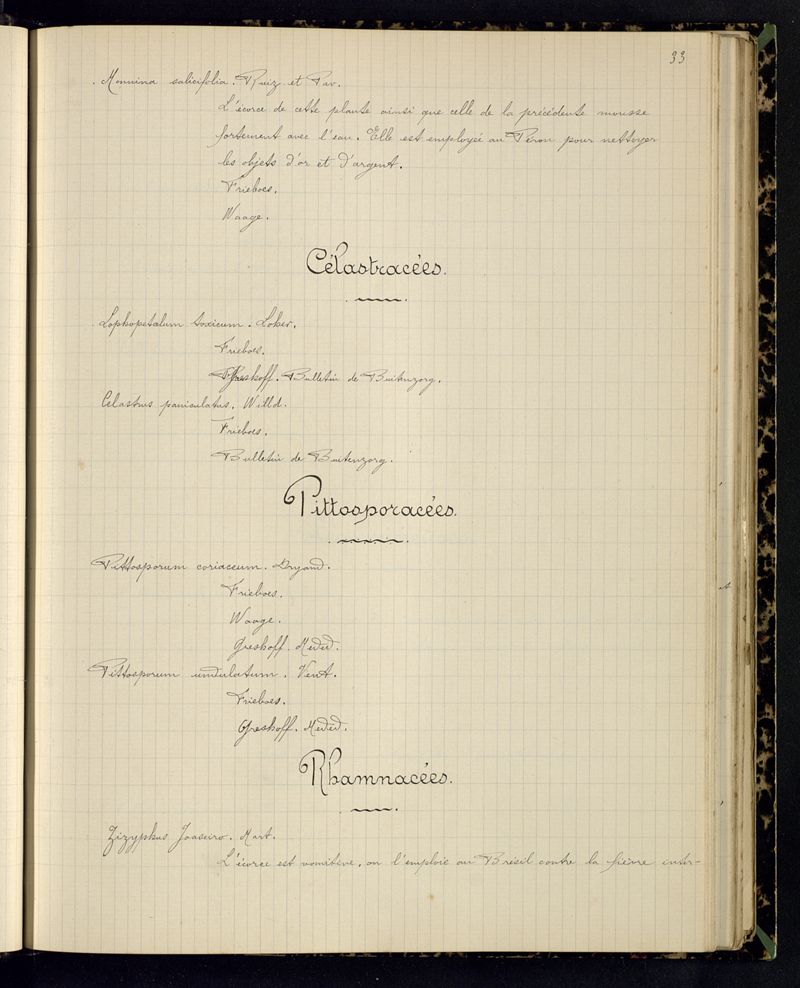 33
Monnina salicifolia. Ruiz et Pav.
L'écorce de cette plante ainsi que celle de la précédente mousse
fortement avec l'eau. Elle est employé au Pérou pour nettoyer
les objets d'or et d'argent.
Frieboes.
Waage.
Célastracées.
Lophopetalum toxicum. Loher.
Frieboes.
Greshoff. Bulletin de Buitenzorg.
Celastrus paniculatus. Willd.
Frieboes.
Bulletin de Buitenzorg.
Pittosporacées.
Pittosporum coriaceum. Dryand.
Frieboes.
Waage.
Greshoff. Meded.
Pittosporum undulatum. Vent.
Frieboes.
Greshoff. Meded.
Rhamnacées.
Zizyphus Joaseiro. Mart.
L'écorce est vomitive, on l'emploie au Brésil contre la fièvre inter-